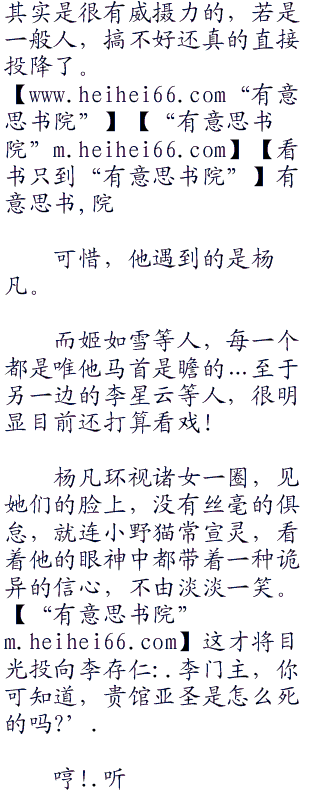 其实是很有威摄力的，若是
一般人，搞不好还真的直接
投降了。
【www.heihei66.com“有意
思书院”】【“有意思书
院”m.heihei66.com】【看
书只到“有意思书院”】有
意思书,院
可惜，他遇到的是杨
凡。
而姬如雪等人，每一个
都是唯他马首是瞻的...至于
另一边的李星云等人，很明
显目前还打算看戏！
杨凡环视诸女一圈，见
她们的脸上，没有丝毫的惧
怠，就连小野猫常宣灵，看
着他的眼神中都带着一种诡
异的信心，不由淡淡一笑。
【“有意思书院”
m.heihei66.com】这才将目
光投向李存仁:.李门主，你
可知道，贵馆亚圣是怎么死
的吗?’.
哼!.听